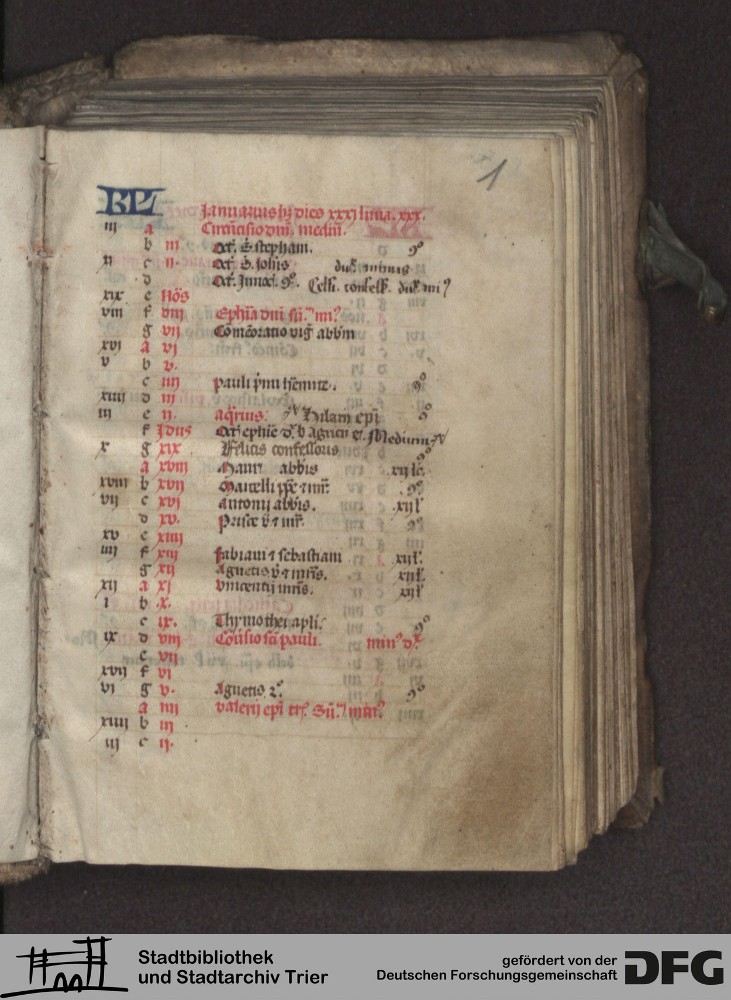 1
KL Januarius hꝫ dies xxxj luna. xxx.
iij a Circūcisio dnī. mediū.
b iiij Oct. S. stephani. 9ᵒ
xi c iij. Oct. S. Johīs dux. minus
d Oct. Innoc. 9ᵒ. Celsi. confess. dux mi⁹
xix e Nōs
viij f viij Ephīa dnī sū. m⁹
g vij Cōmēoratio virḡ abbīm
xvj a vj
v b v.
c iiij pauli p̄mi hēmite. 9ᵒ
xiij d iij
ij e ij. aq̄rius. Hilarij epī 9ᵒ
f Idus Oct ephīe dx. b Agricij et. Medium
x g xix Felicis confessoris 9ᵒ
a xviij Mauri abbīs xij lc.
xviij b xvij Marcelli ppe ⁊ mr̄. 9ᵒ
vij c xvj antonij abbīs. xij l.
d xv. Prisce v̄ ⁊ mr̄. 9ᵒ
xv e xiiij
iiij f xiij fabiani ⁊ sebastiani xij l.
g xij Agnetis v̄ ⁊ mr̄is. xij l.
xij a xj vincentij mr̄is. xij l.
i b x.
c ix. Thymothei apli. 9ᵒ
ix d viij Cōūsio scī pauli. min⁹ dx.
e vij
xvij f vj
vj g v. Agnetis 2ᵒ. 9ᵒ
a iiij valerij epī trē. Sū. min⁹
xiiij b iij
iij c ij.
Stadtbibliothek
und Stadtarchiv Trier
gefördert von der
Deutschen Forschungsgemeinschaft
DFG